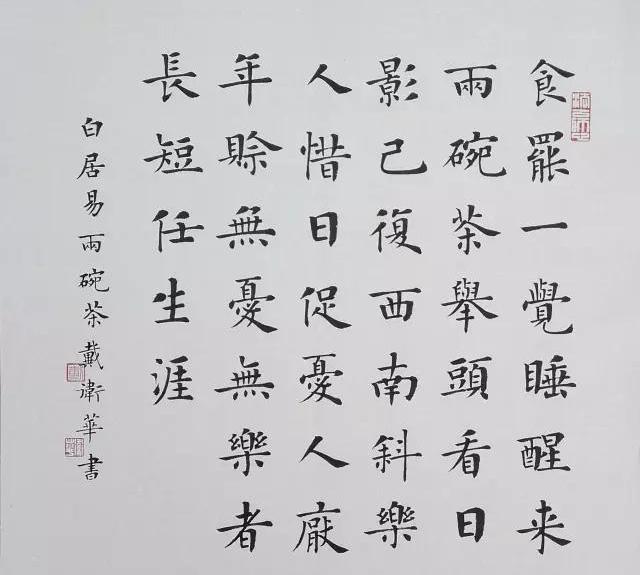 食罷一覺睡醒来
兩碗茶舉頭看日
影己復西南斜樂
人惜日促憂人厭
年賒無憂無樂者
長短任生涯
白居易兩碗茶戴衛華書